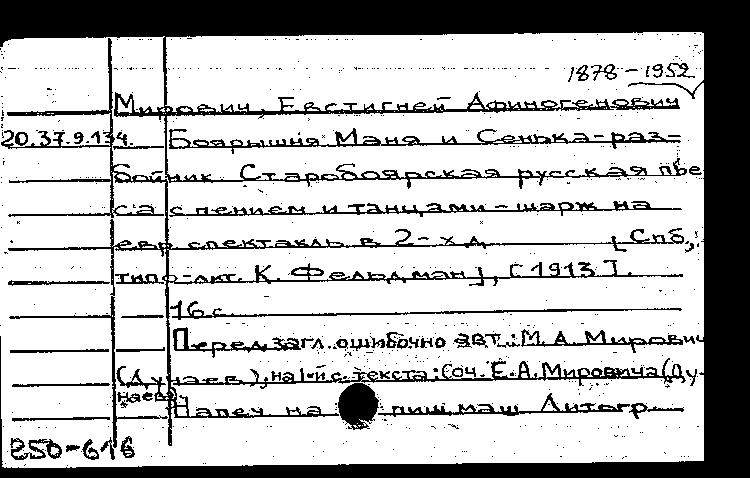 1878-1952
Мирович, Евстигней Афиногенович
20.37.9.134. Боярышня Маня и Сенька-раз-
бойник. Старобоярская русская пье
са с пением и танцами - шарж на
евр спектакль в 2-х д [Спб,
типо-лит. К. Фельдман], [1913].
16 с.
Перед загл. ошибочно авт.: М.А. Мирович
(Дунаев), на 1-й с. текста: Соч. Е.А. Мировича (Ду-
наева)
Напеч на пиш маш Литогр.
250-616